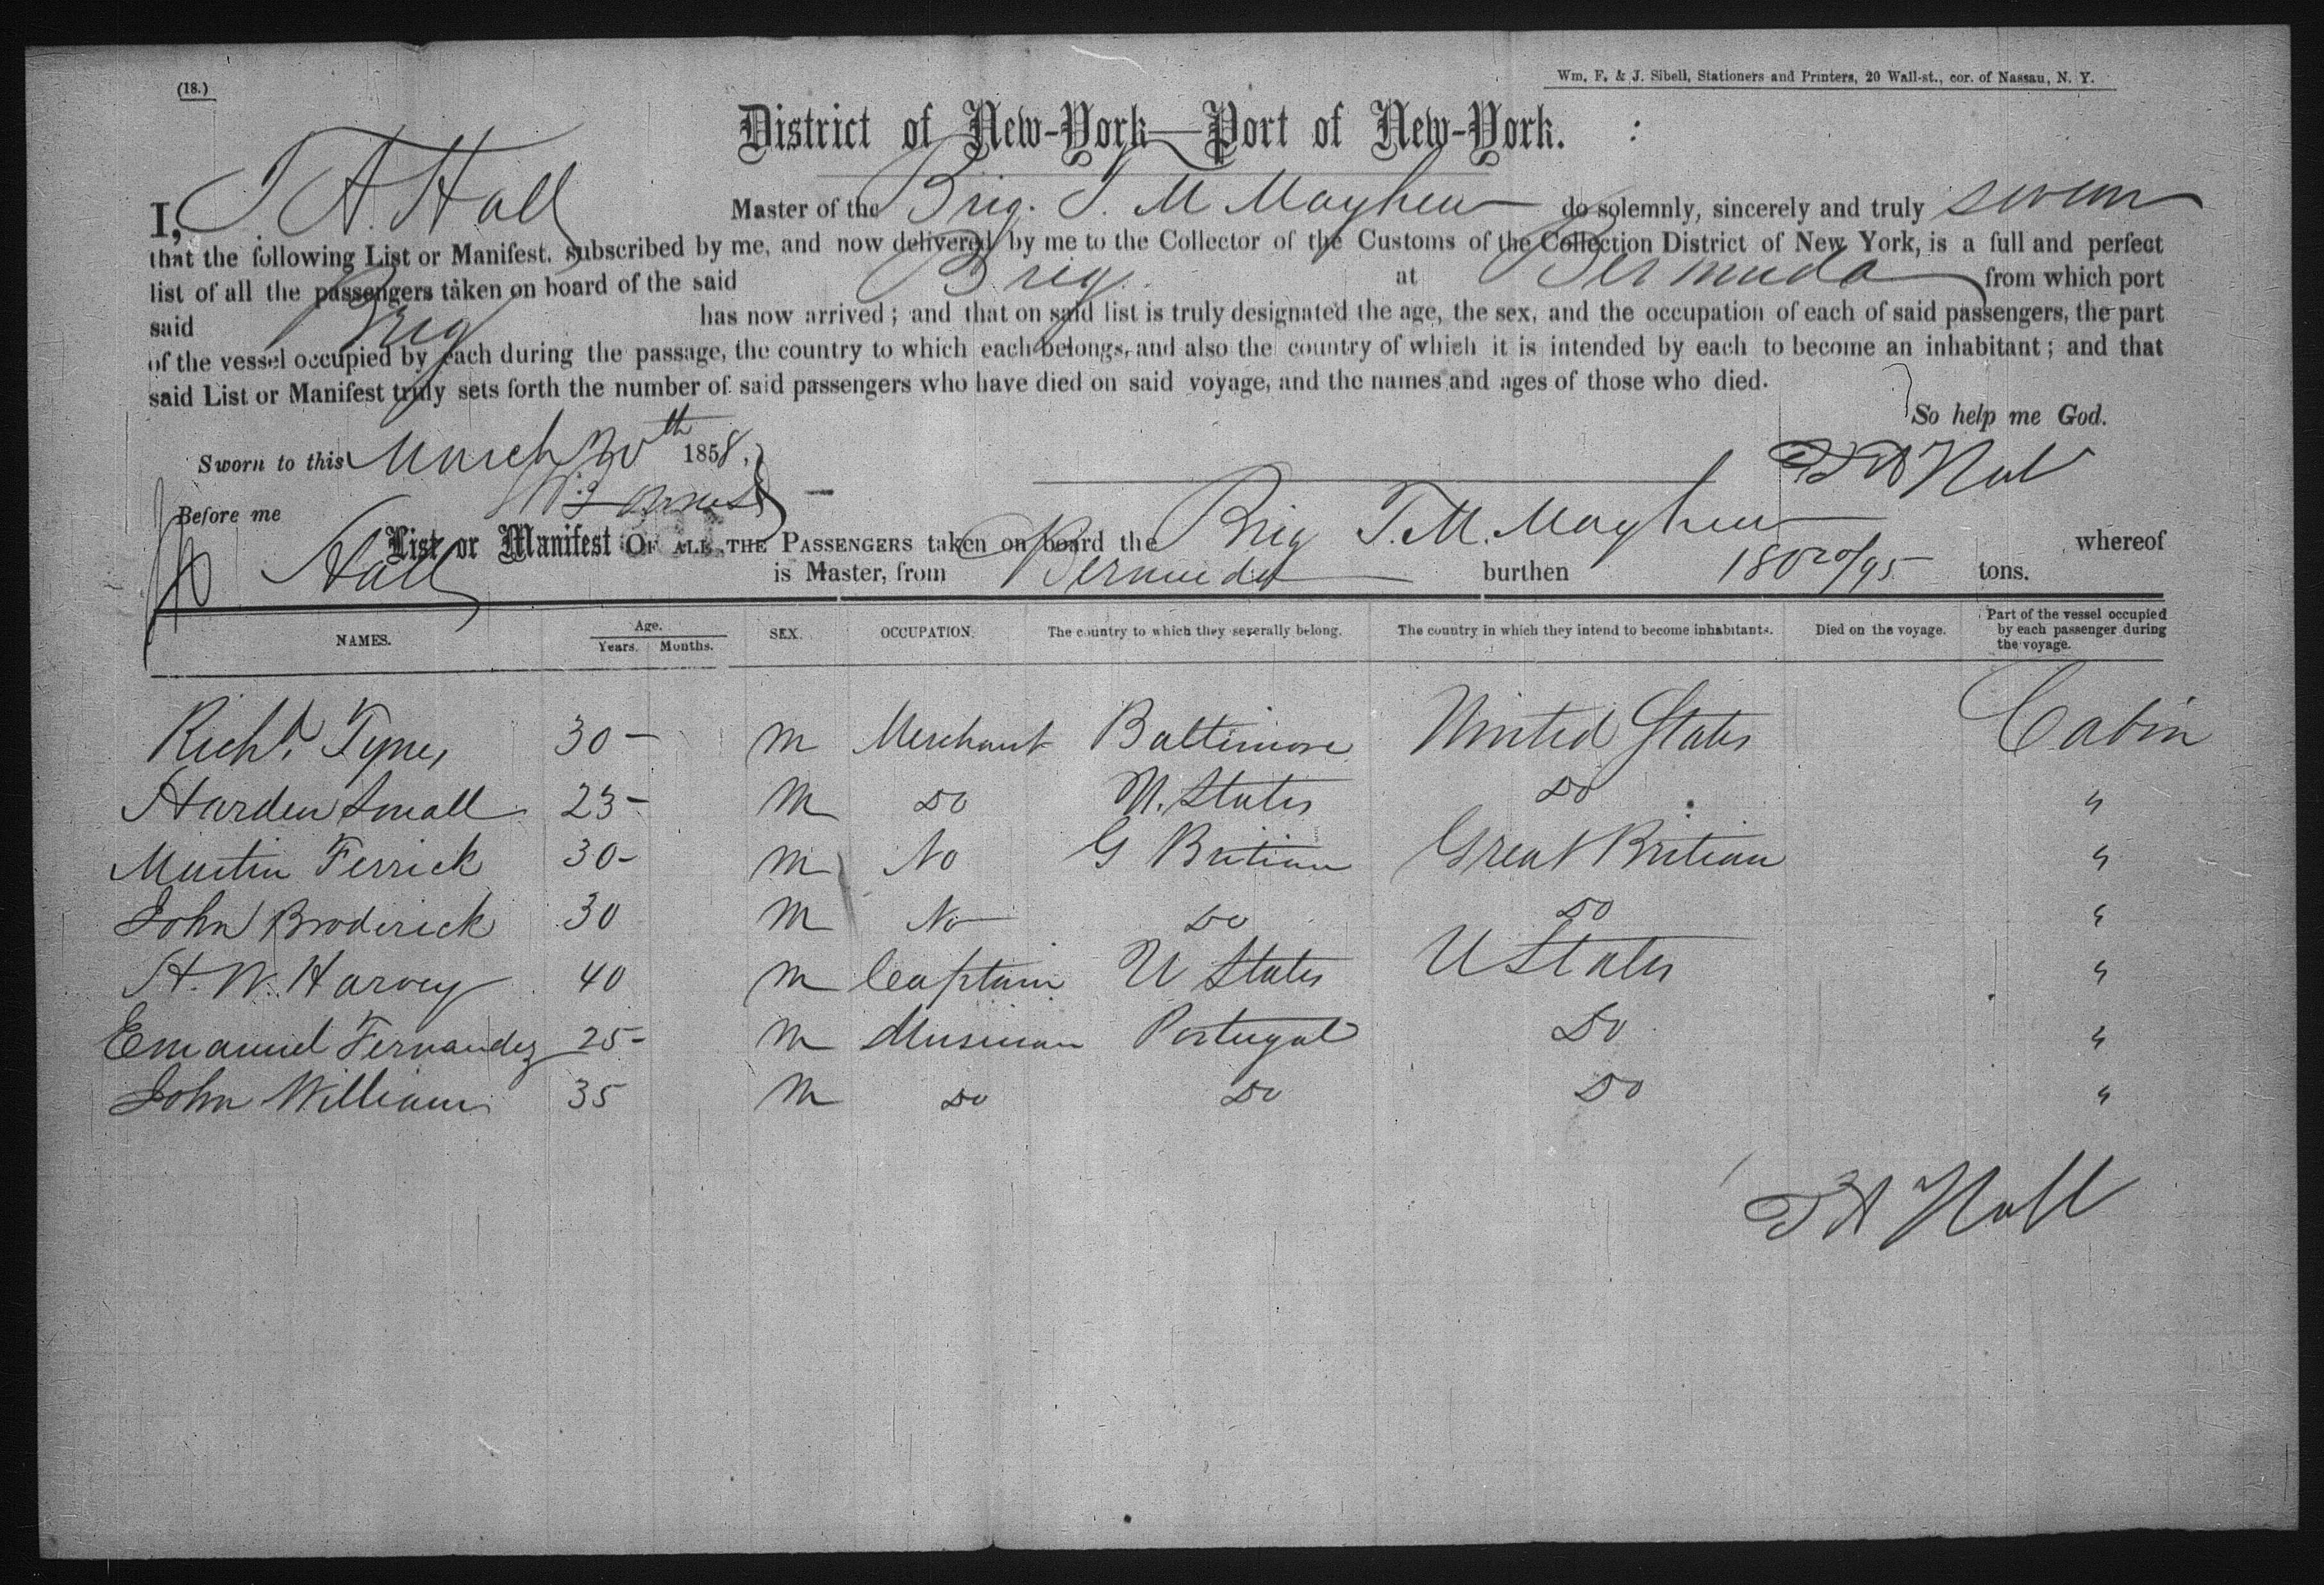 (18.)
Wm. F. & J. Sibell, Stationers and Printers, 20 Wall-st., cor. of Nassau, N. Y.
District of New-York—Port of New-York.
I, T A Hall Master of the Brig. T. M Mayhew do solemnly, sincerely and truly swear
that the following List or Manifest, subscribed by me, and now delivered by me to the Collector of the Customs of the Collection District of New York, is a full and perfect
list of all the passengers taken on board of the said Brig at Bermuda from which port
said Brig has now arrived; and that on said list is truly designated the age, the sex, and the occupation of each of said passengers, the part
of the vessel occupied by each during the passage, the country to which each belongs, and also the country of which it is intended by each to become an inhabitant; and that
said List or Manifest truly sets forth the number of said passengers who have died on said voyage, and the names and ages of those who died.
So help me God.
Sworn to this March 20th 1858,
T A Hall
Before me
List or Manifest OF ALL THE PASSENGERS taken on board the Brig T. M. Mayhew whereof
Hall is Master, from Bermuda burthen 180 20/95 tons.
NAMES. Age. Years. Months. SEX. OCCUPATION. The country to which they severally belong. The country in which they intend to become inhabitants. Died on the voyage. Part of the vessel occupied by each passenger during the voyage.
Richd. Tynes 30 – M Merchant Baltimore United States Cabin
Harden Small 23 – M Do U. States Do "
Martin Ferrick 30 – M No G Britian Great Britian "
John Broderick 30 M No Do Do "
H. W. Harvey 40 M Captain U States U States "
Emanuel Fernandez 25 – M Musician Portugal Do "
John Williams 35 M Do Do Do "
T A Hall